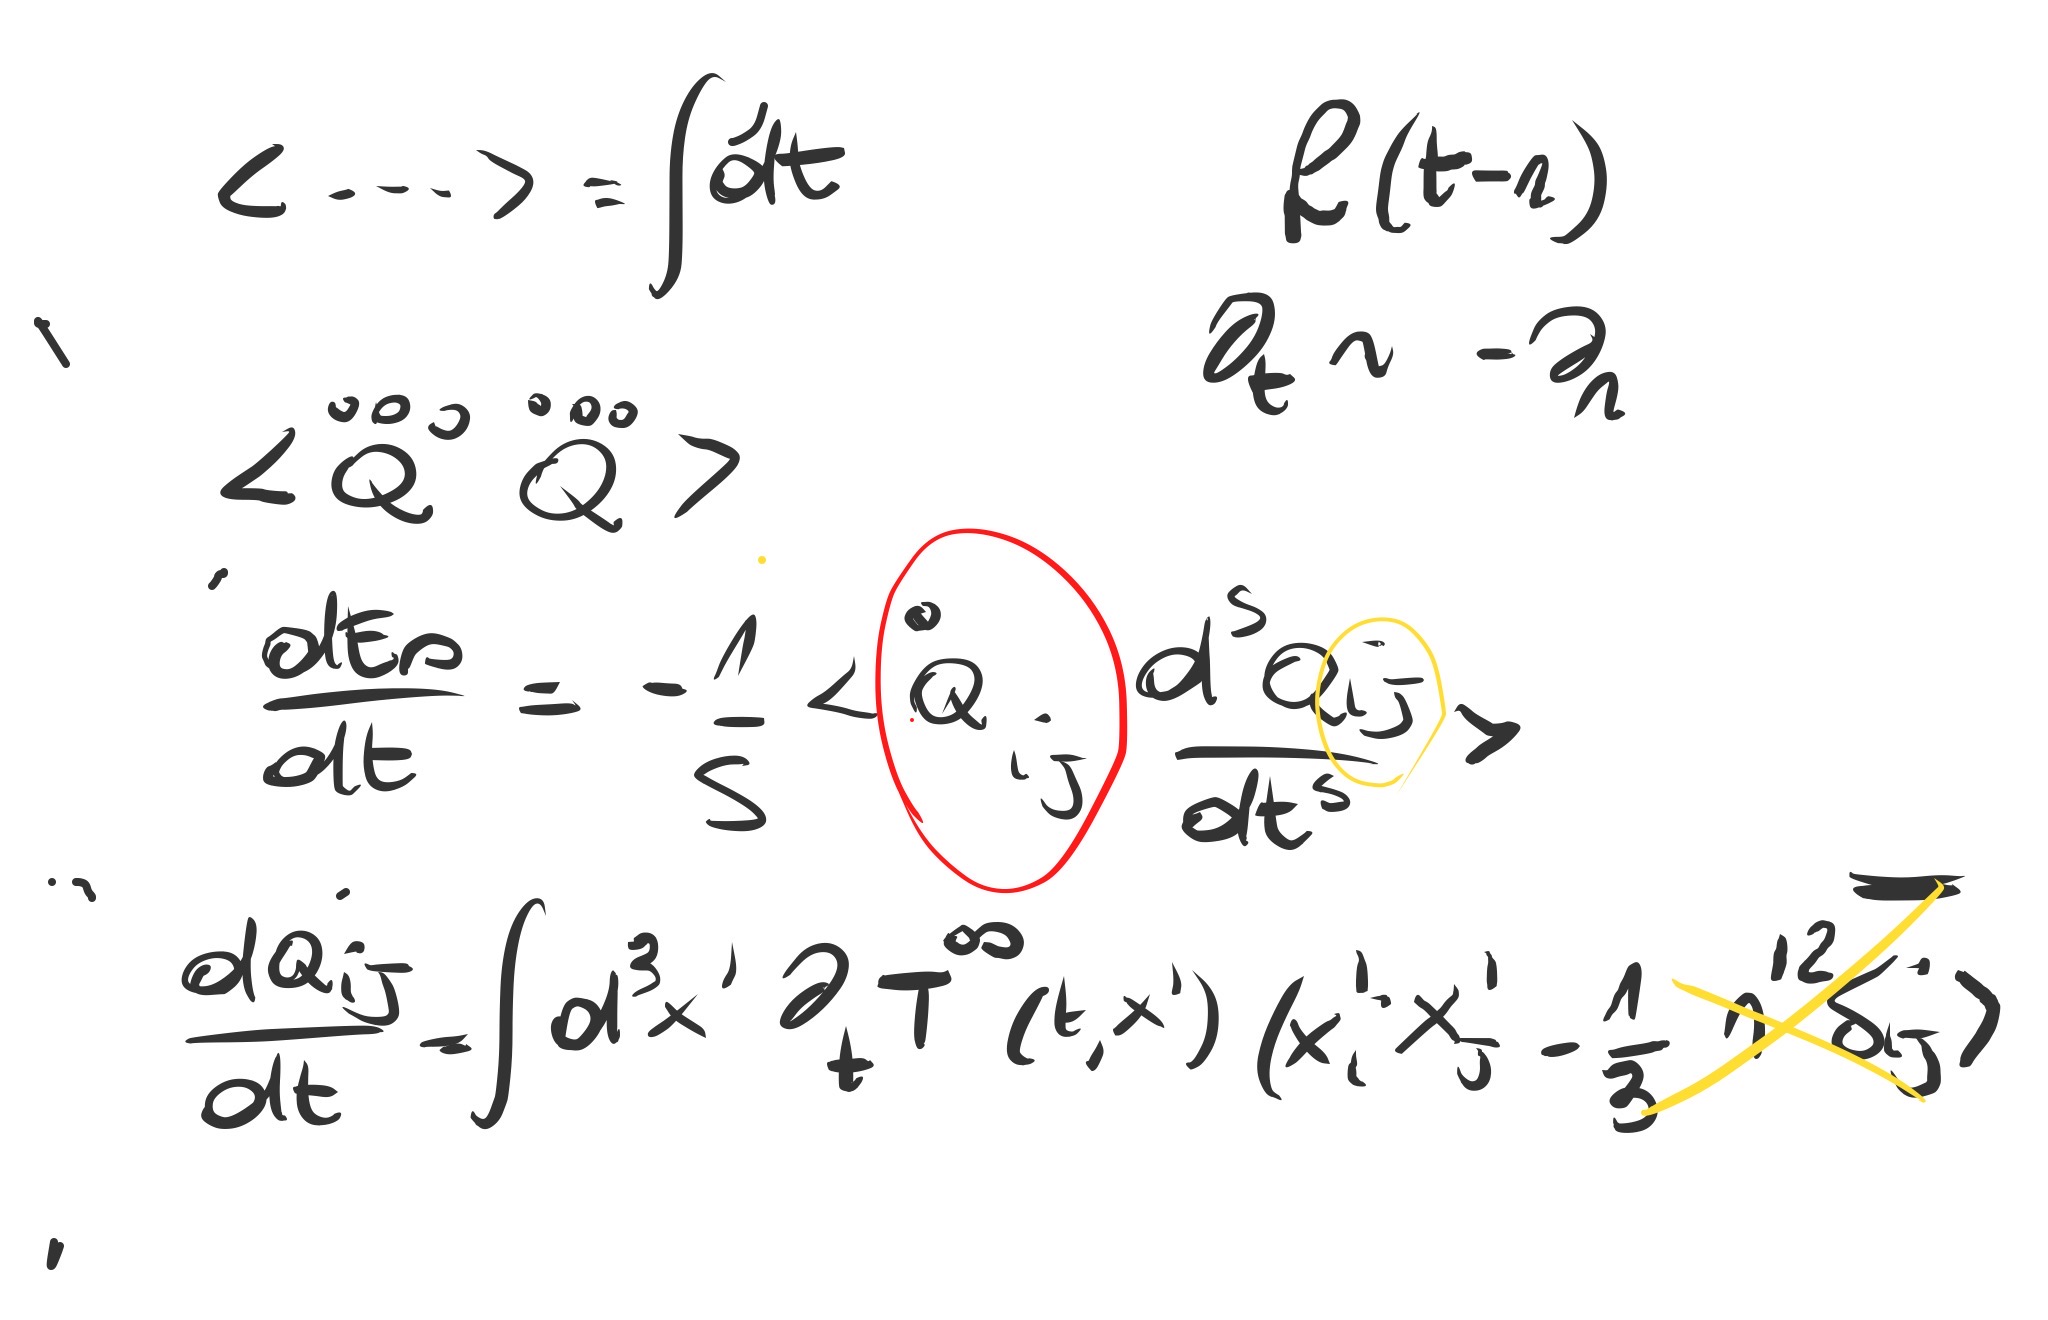 < ... > = ∫ dt f(t-r)
∂_t ~ -∂_r
< \dddot{Q} \dddot{Q} >
\frac{dE_s}{dt} = - \frac{1}{5} < \dot{Q}_{ij} \frac{d^5 Q_{ij}}{dt^5} >
\frac{dQ_{ij}}{dt} = ∫ d^3x' ∂_t T^{00} (t,x') (x'_i x'_j - \frac{1}{3} r'^2 δ_{ij})